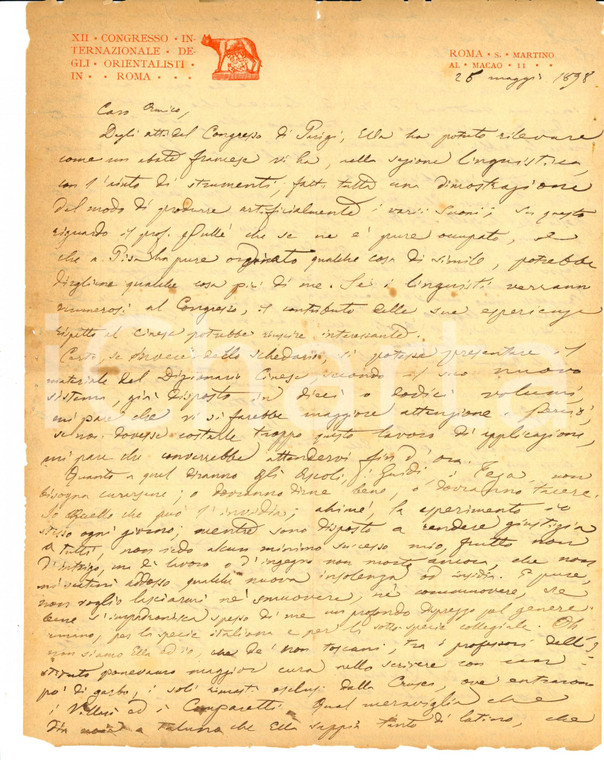 XII CONGRESSO IN-
TERNAZIONALE DE-
GLI ORIENTALISTI
IN · · ROMA · · ·
ROMA · S. MARTINO
AL MACAO 11 · ·
26 maggio 1898
Caro Amico,
Dagli atti del Congresso di Parigi, Ella ha potuto rilevare
come un abate francese vi ha, nella sezione linguistica,
con l'aiuto di strumenti, fatta tutta una dimostrazione
del modo di produrre artificialmente i varii suoni; su questo
riguardo il prof. che se ne è pure occupato, e
che a Pisa ha pure qualche cosa di simile, potrebbe
dirgliene qualche cosa più di me. Se i linguisti verranno
numerosi al Congresso, il contributo delle sue esperienze
rispetto al cinese potrebbe riuscire interessante.
Certo, se invece dello schedario, si potesse presentare il
materiale del Dizionario Cinese, secondo il suo nuovo
sistema, già disposto in dieci o dodici volumi,
mi pare che vi si farebbe maggiore attenzione e perciò,
se non dovesse costarle troppo questo lavoro di applicazione,
mi pare che converrebbe attendervi fin d'ora.
Quanto a quel diranno gli Ascoli, i Guidi, i Teza, non
bisogna curarsene; o dovranno dirne bene, o dovranno tacere.
So quello che può l'invidia; ahimè, la esperimento io
stesso ogni giorno; mentre sono disposto a rendere giustizia
a tutti, non vedo alcun minimo successo mio, frutto non
d'intrigo, ma di lavoro o d'ingegno non morto ancora, che non
mi attiri addosso qualche nuova insolenza od insidia. E pure,
non voglio lasciarmi nè smuovere, nè commuovere, se
bene s'impadronisca spesso di me un profondo disprezzo pel genere
umano, per la specie italiana e per la sotto-specie collegiale. Oh
non siamo Ella ed io, che de' non toscani, tra i professori dell'I-
stituto ponevamo maggior cura nello scrivere con un
po' di garbo, i soli rimasti esclusi dalla Crusca, ove entrarono
i Villari ed i Comparetti. Qual meraviglia che
dia noia a taluno che Ella sappia tanto di latino, che